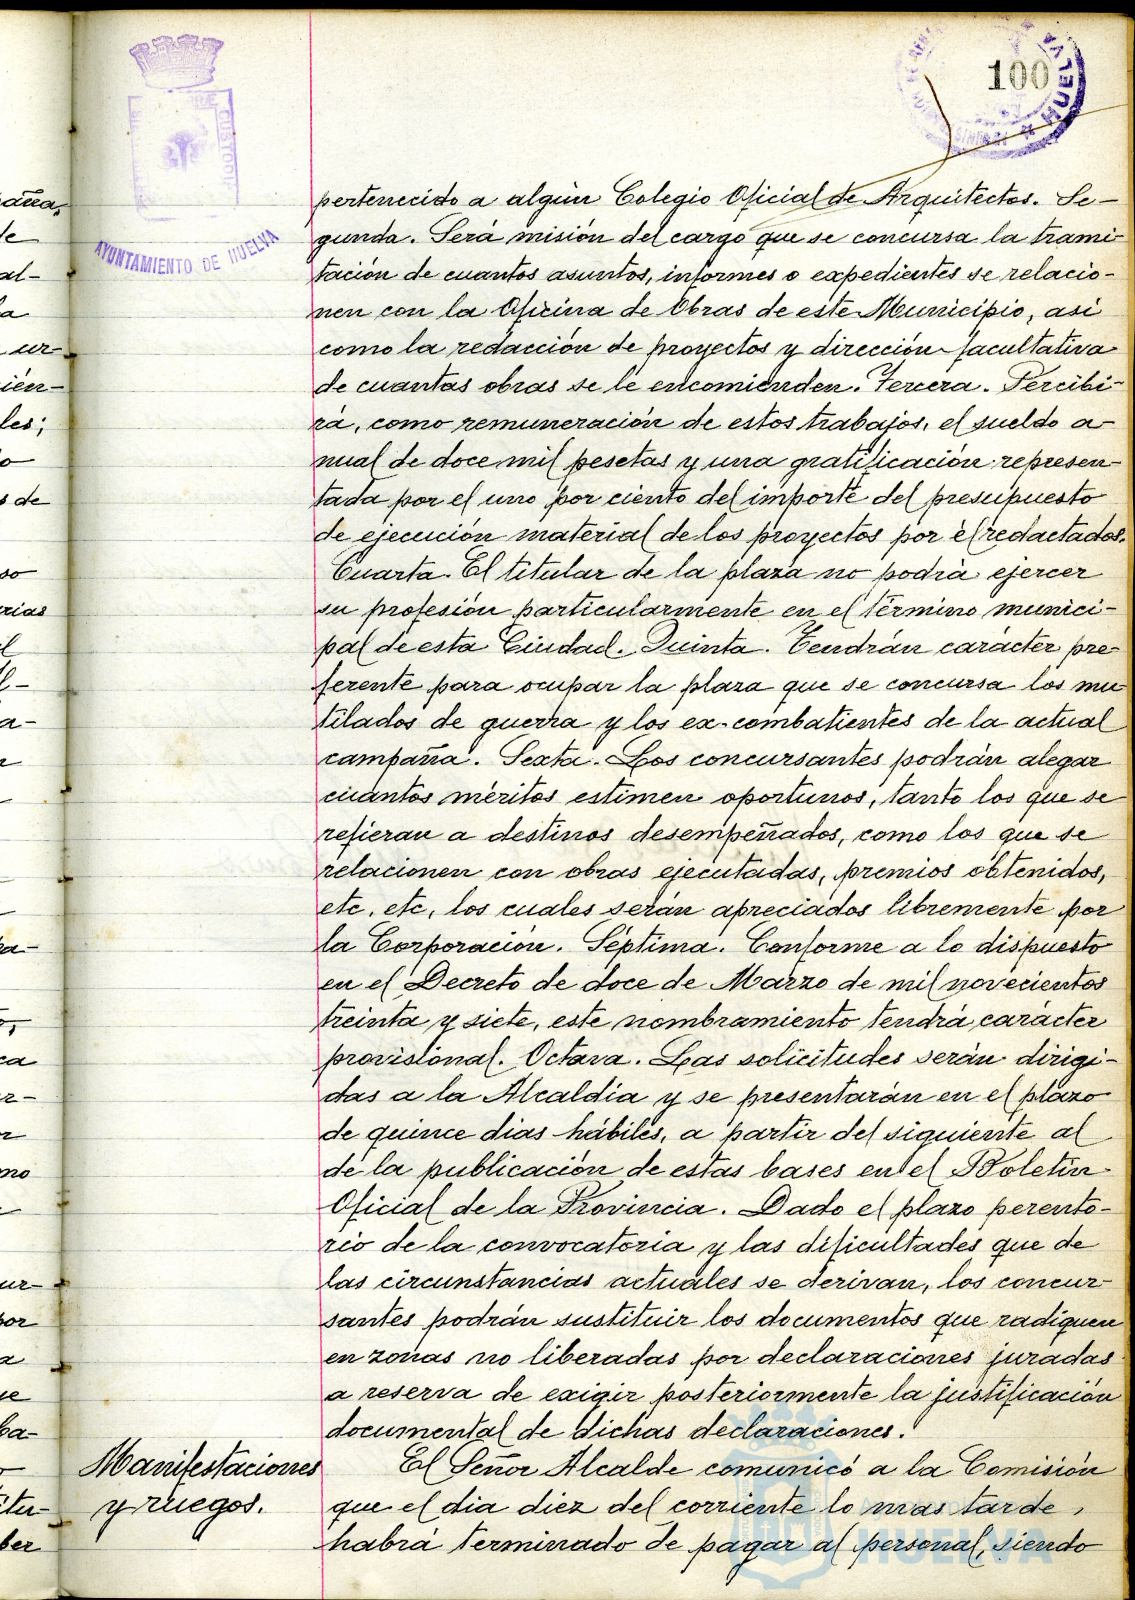 100
HUELVA
AYUNTAMIENTO DE HUELVA
pertenecido a algún Colegio Oficial de Arquitectos. Se-
gunda. Será misión del cargo que se concursa la trami-
tación de cuantos asuntos, informes o expedientes se relacio-
nen con la Oficina de Obras de este Municipio, así
como la redacción de proyectos y dirección facultativa
de cuantas obras se le encomienden. Tercera. Percibi-
rá, como remuneración de estos trabajos, el sueldo a-
nual de doce mil pesetas y una gratificación represen-
tada por el uno por ciento del importe del presupuesto
de ejecución material de los proyectos por él redactados.
Cuarta. El titular de la plaza no podrá ejercer
su profesión particularmente en el término munici-
pal de esta Ciudad. Quinta. Tendrán carácter pre-
ferente para ocupar la plaza que se concursa los mu
tilados de guerra y los ex-combatientes de la actual
campaña. Sexta. Los concursantes podrán alegar
cuantos méritos estimen oportunos, tanto los que se
refieran a destinos desempeñados, como los que se
relacionen con obras ejecutadas, premios obtenidos,
etc, etc, los cuales serán apreciados libremente por
la Corporación. Séptima. Conforme a lo dispuesto
en el Decreto de doce de Marzo de mil novecientos
treinta y siete, este nombramiento tendrá carácter
provisional. Octava. Las solicitudes serán dirigi-
das a la Alcaldía y se presentarán en el plazo
de quince dias hábiles, a partir del siguiente al
de la publicación de estas bases en el Boletín
Oficial de la Provincia. Dado el plazo perento-
rio de la convocatoria y las dificultades que de
las circunstancias actuales se derivan, los concur-
santes podrán sustituir los documentos que radiquen
en zonas no liberadas por declaraciones juradas
a reserva de exigir posteriormente la justificación
documental de dichas declaraciones.
Manifestaciones
y ruegos.
El Señor Alcalde comunicó a la Comisión
que el dia diez del corriente lo mas tarde,
habrá terminado de pagar al personal, siendo
HUELVA